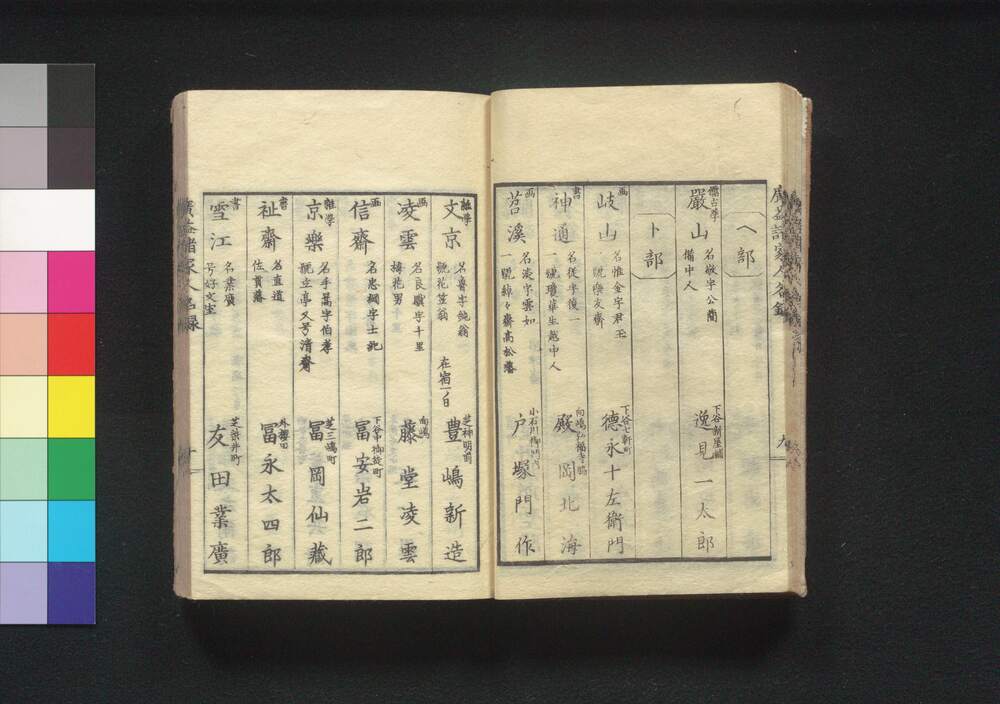 廣益諸家人名録
九
ヘ部
儒古学
巌山
名敬字公簡
備中人
下谷新屋鋪
逸見一太郎
ト部
画
岐山
名惟金字君玉
一號喚友齋
下谷七軒町
德永十左衛門
書
神通
名従字俊一
一號瓊華生越中人
向嶋弘福寺
殿岡北海
画
苕溪
名淡字雲如
一號綽々齋高松藩
小石川御門内
戸塚門作
雜学
文京
名魯字鈍翁
號花笠翁
在宿一ノ日
芝神明前
豊嶋新造
画
凌雲
名良驥字十里
梅花男
向嶋
藤堂凌雲
画
信齋
名忠綱字士
下谷中御徒町
冨安岩二郎
雜学
京樂
名手萬字伯孝
號立亭又号清齋
芝三嶋町
冨岡仙藏
書
祉齋
名直道
佐貫藩
外櫻田
冨永太四郎
書
雪江
名業廣
号好文堂
芝柴井町
友田業廣
廣益諸家人名録
十